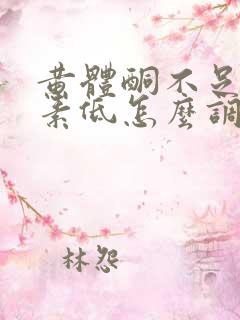 黄體酮不足
素低怎麼調
林怨